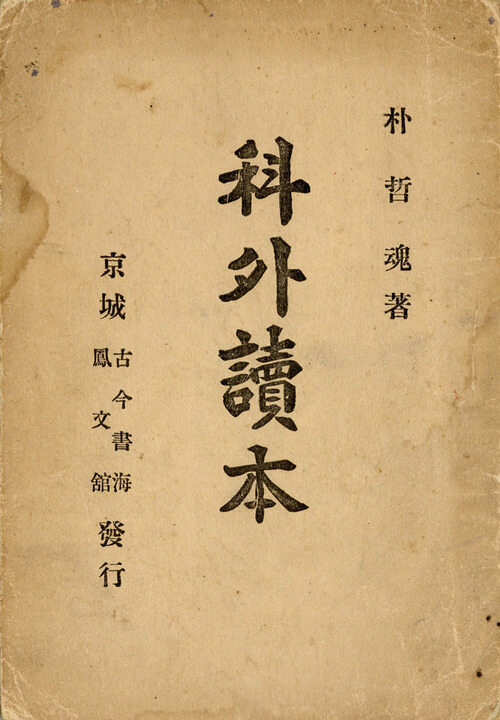 朴哲魂著
科外讀本
京城
古今書海
鳳文舘
發行